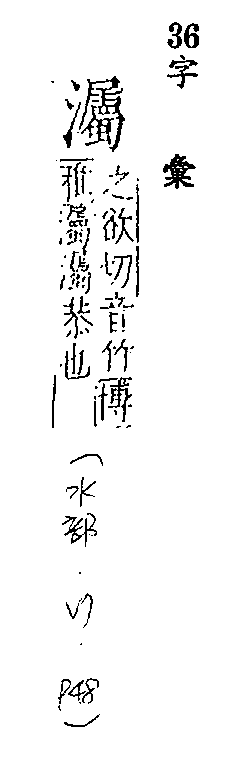 36字彙
灟
之欲切音竹博
雅灟灟恭也
(水部 . . P48)